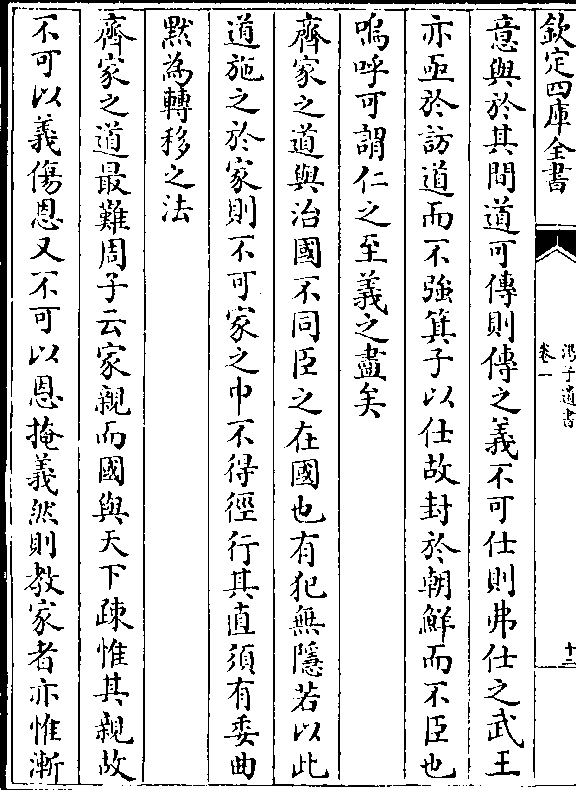 欽定四庫全書
卷一
遺書
十二
意與於其間道可傳則傳之義不可仕則弗仕之武王
亦亟於訪道而不強箕子以仕故封於朝鮮而不臣也
嗚呼可謂仁之至義之盡矣
齊家之道與治國不同臣之在國也有犯無隱若以此
道施之於家則不可家之中不得徑行其直須有委曲
默為轉移之法
齊家之道最難周子云家親而國與天下疎惟其親故
不可以義傷恩又不可以恩掩義然則教家者亦惟漸